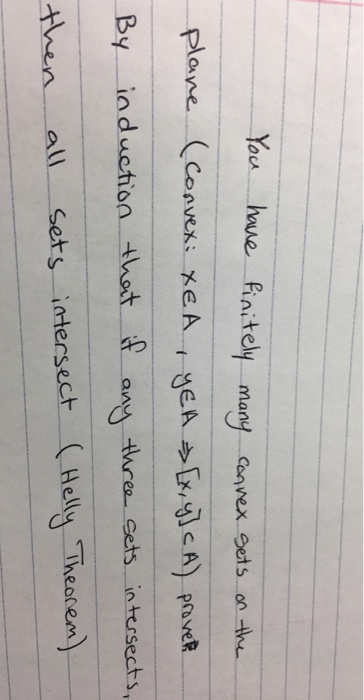 You have finitely many convex sets on the
plane (Convex: x∈A, y∈A ⇒ [x,y] ⊂ A) prove
By induction that if any three sets intersects,
then all sets intersect (Helly Theorem)